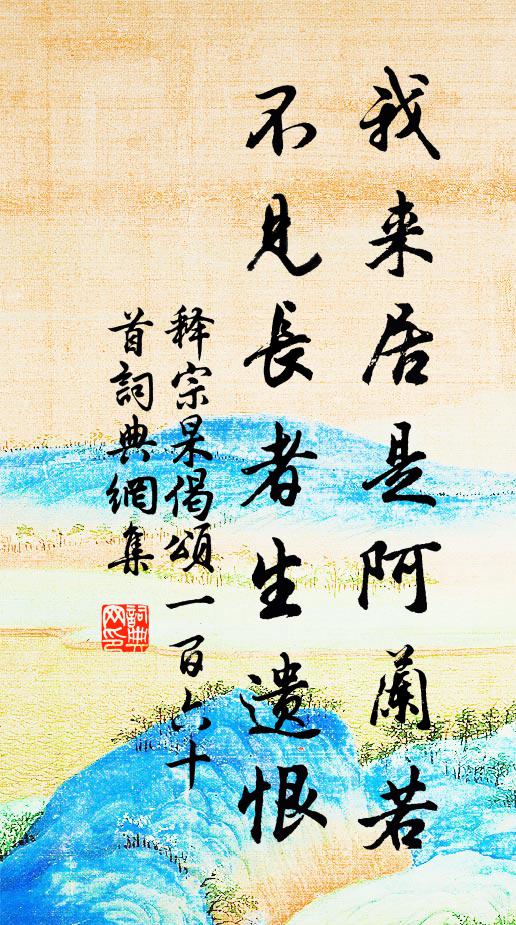 我来居是阿蘭若
不見長者生遺恨
释宗杲偈頌一百六十
首詞典網集
詞典
网印